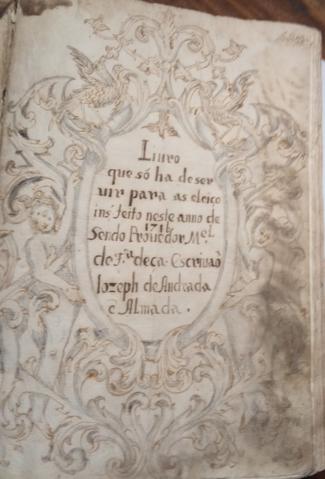 Liuro
que só ha de ser
uir para as eleiço
ins feito neste anno de
Sendo Prouedor M.el
de F.ra deca- Escriuaõ
Iozeph de Andrada
e Almada.